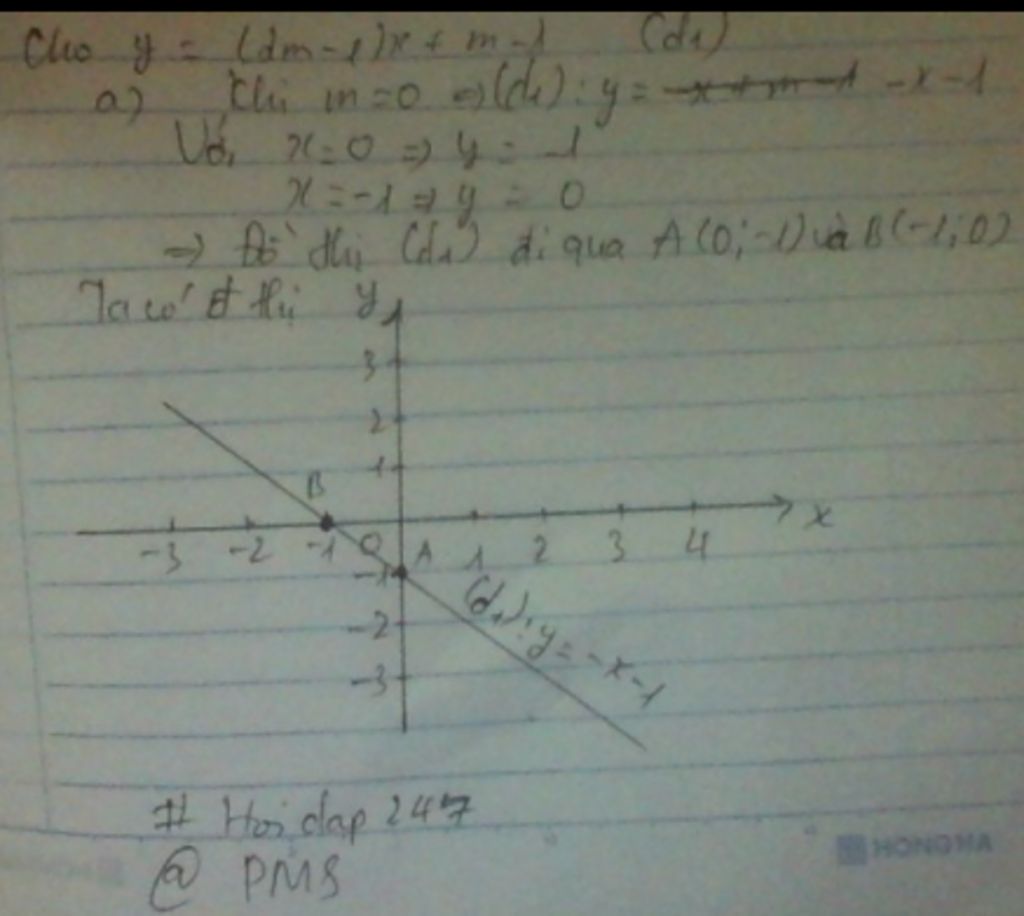 Cho y = (2m-1)x + m-1 (d1)
a) Khi m=0 => (d1): y = -x+m-1 -x-1
Với x=0 => y = -1
x=-1 => y = 0
=> Đồ thị (d1) đi qua A(0;-1) và B(-1;0)
Ta có đồ thị
y
3
2
1
B
-3 -2 -1 O A 1 2 3 4 x
-1
(d1): y = -x-1
-2
-3
# Hoidap 247
@ PMS
HONG HA